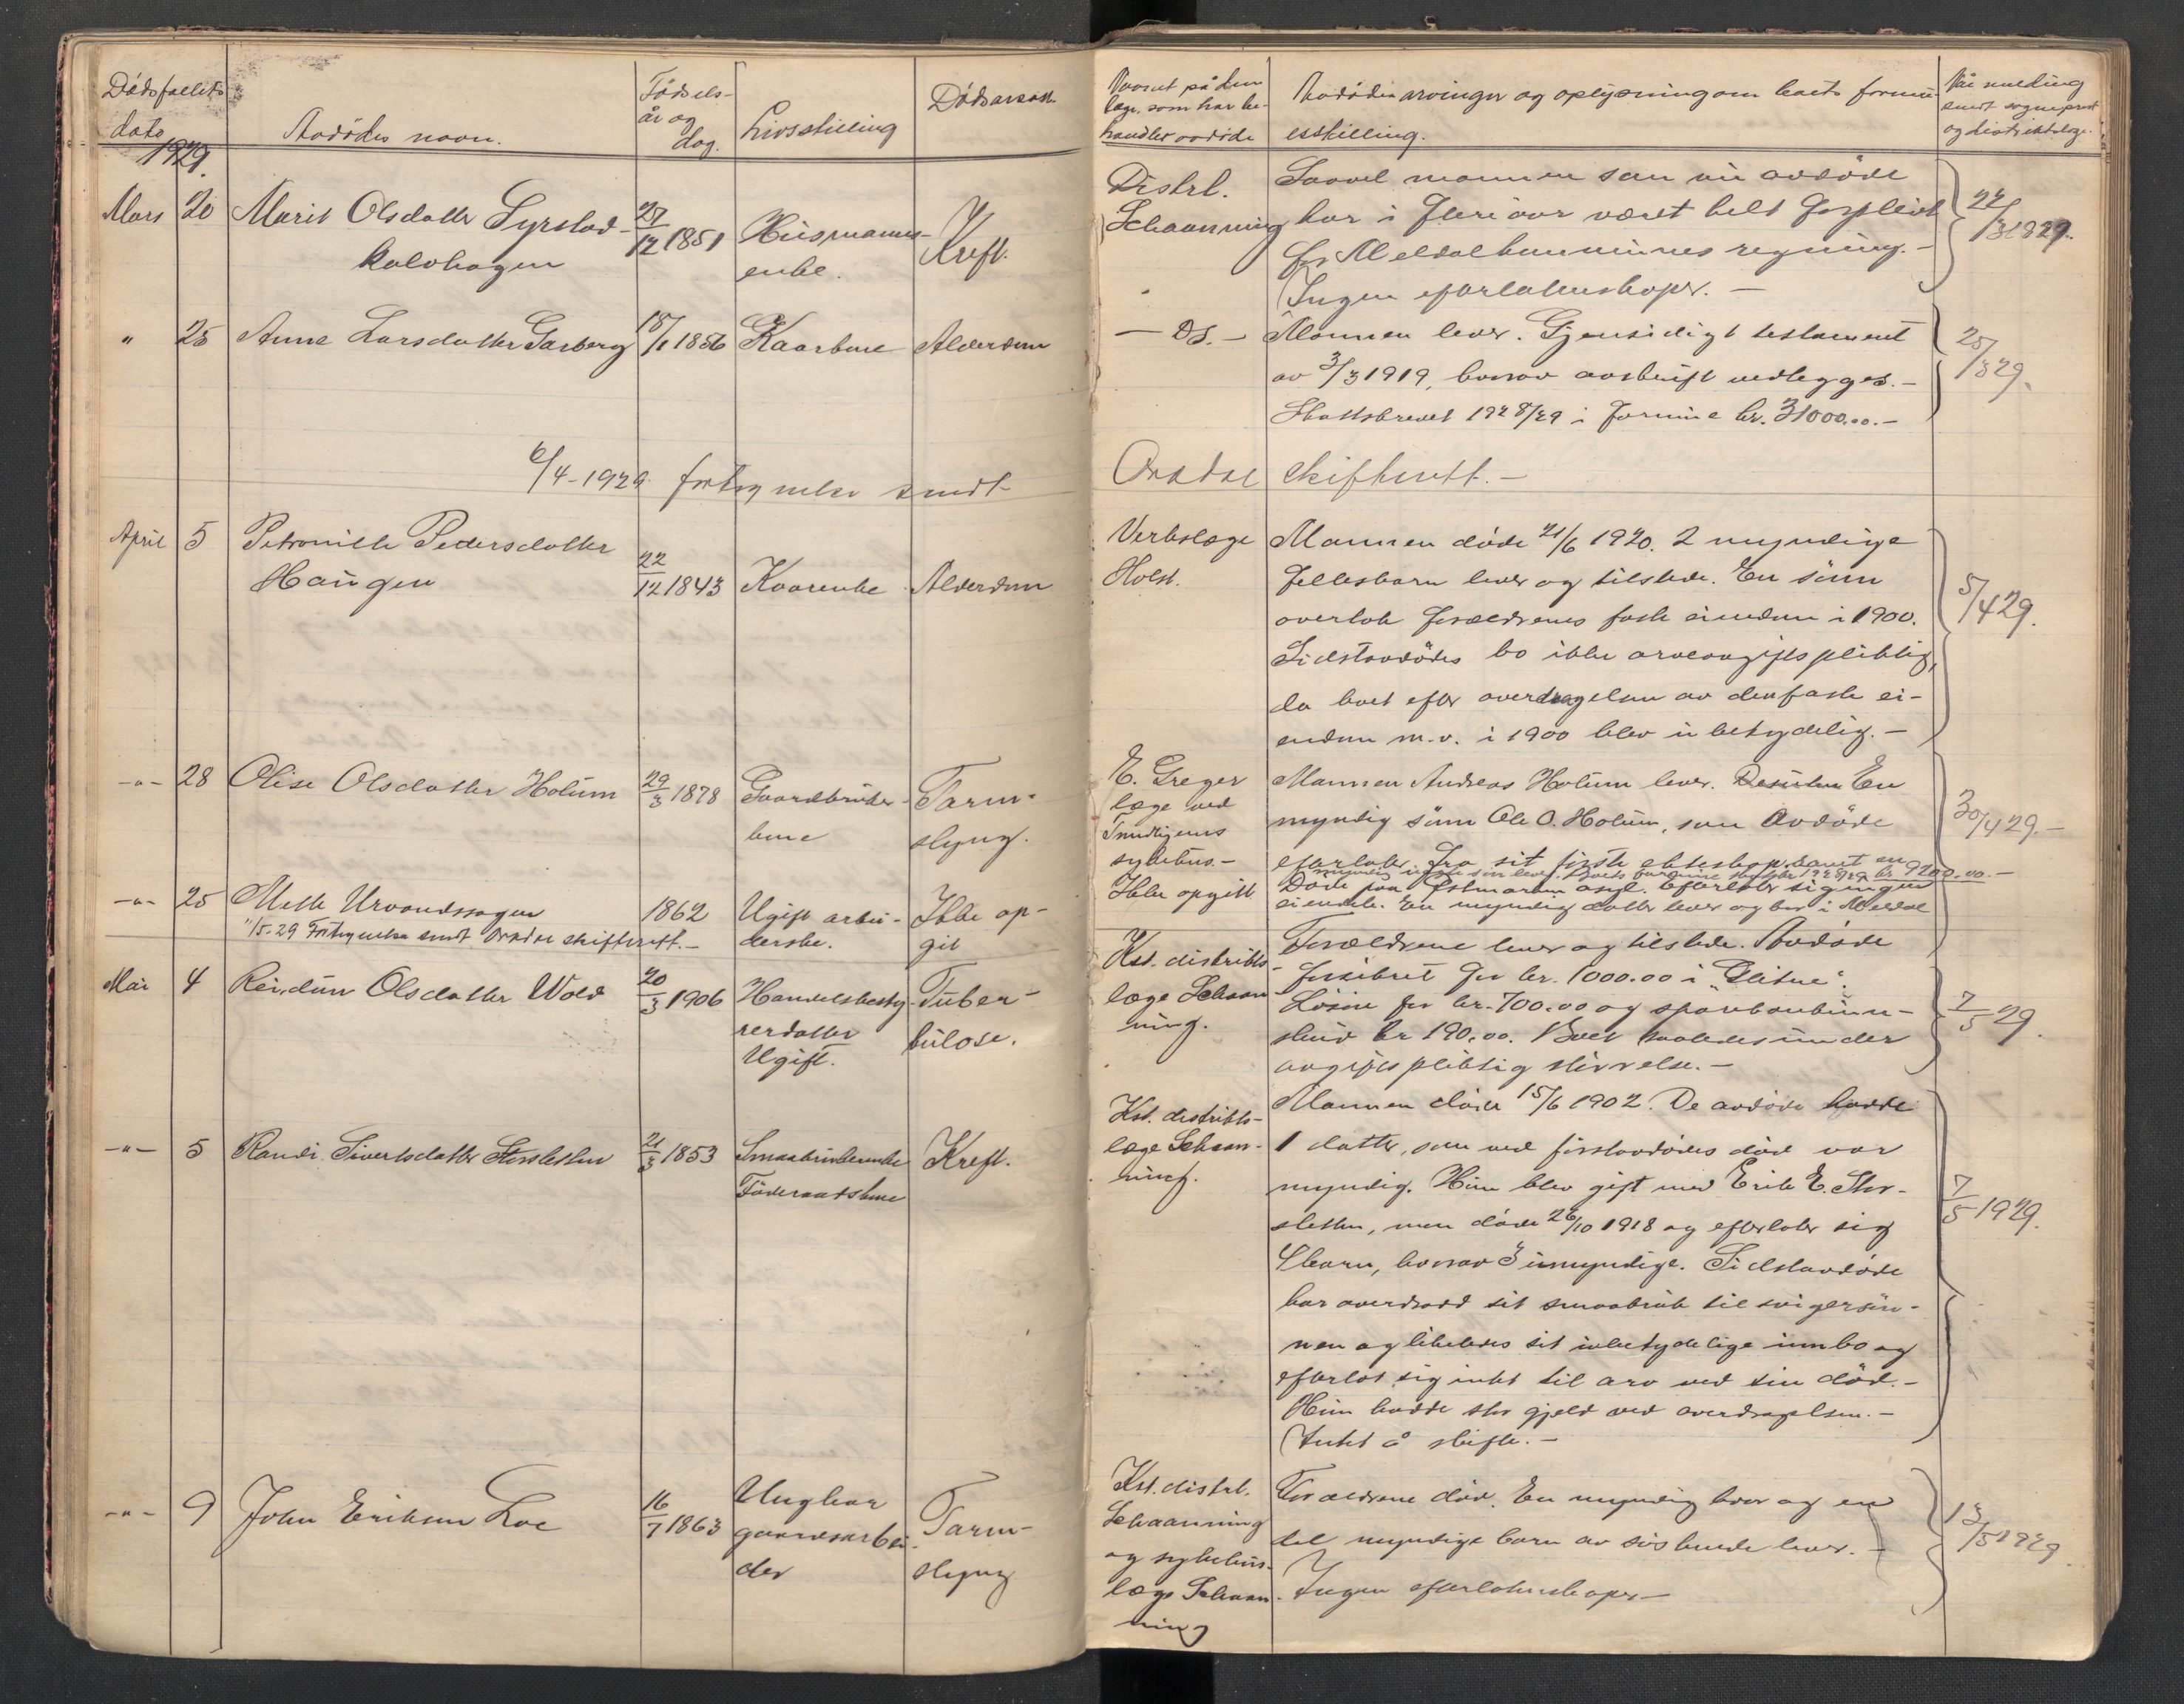 Dødsfallets
dato
1929.
Avdødes navn.
Fødsels-
år og
dag.
Livsstilling
Dødsårsak.
Navnet på den
læge, som har be-
handlet avdøde
Avdødes arvinger og oplysning om boets formu-
esstilling.
Når melding
sendt sogneprest
og distriktslæge.
Mars 20 Marit Olsdatter Syrstad-
kalvhagen
27/12 1851
Husmanns-
enke.
Kreft.
Distrl.
Schaanning
Saavel mannen som nu avdøde
har i flere aar været helt forpleiet
for Meldal kommunes regning. -
Ingen efterlatenskaper. -
22/3 1929.
" 25 Anne Larsdatter Garberg
18/1 1856
Kaarkone
Alderdom
- Ds. -
Mannen lever. Gjensidigt testament
av 3/3 1919, hvorav avskrift vedlegges. -
Skattebrevet 1928/29 i formue kr. 31000.00. -
25/3 29.
6/4-1929. fortegnelse sendt
Orkdal skifterett. -
April 5 Petronille Pedersdatter
Haugen
22/12 1843
Kaarenke
Alderdom
Verkslæge
Holst.
Mannen døde 21/6 1920. 2 myndige
fellesbarn lever og tilstede. En sønn
overtok forældrenes faste eiendom i 1900.
Sidstavdødes bo ikke arveavgiftspliktig,
da boet efter overdragelsen av den faste ei-
endom m.v. i 1900 blev ubetydelig. -
5/4 29.
-"- 28 Olise Olsdatter Holum
29/3 1878
Gaardbruker-
kone
Tarm-
slyng.
E. Greger
læge ved
Trudligens
sykehus. -
Mannen Andreas Holum lever. Desuten En
myndig sønn Ole O. Holum, som Avdøde
efterlater fra sit første ekteskap. samt en
myndig ugift søn lever. Boets formue skattelgn. 1928/29 kr. 9200.00. -
30/4 29. -
-"- 25 Mette Urvandssagen
1862
Ugift arbei-
derske.
Ikke op-
git
Ikke opgitt
Døde paa Østmarken asyl. Efterlater sig ingen
eiendele. En myndig datter lever og bor i Meldal
"/5-29 Fortegnelse sendt Orkdal skifterett. -
Mai 4 Reidun Olsdatter Wold
20/3 1906
Handelsbesty-
rerdatter
Ugift.
Tuber-
kulose.
Kst. distrikts-
læge Schaan-
ning.
Forældrene lever og tilstede. Avdøde
forsikret for kr. 1000.00 i "Glitne".
Løsøre for kr. 700.00 og sparebankinn-
skud kr 190.00. Boet saaledes under
avgiftspliktig størrelse. -
7/5 29.
-"- 5 Randi Sivertsdatter Storsletten
21/3 1853
Smaabrukerenke
Føderaadskone
Kreft.
Kst. distrikts-
læge Schaan-
ning.
Mannen døde 15/6 1902. De avdøde hadde
1 datter, som ved førstavdødes død var
myndig. Hun blev gift med Erik E. Stor-
sletten, men døde 26/10 1918 og efterlater sig
9 barn, hvorav 3 umyndige. Sidstavdøde
har overdradd sit smaabruk til svigersøn-
nen og likeledes sit ubetydelige innbo og
efterlot sig intet til arv ved sin død. -
Hun hadde stor gjeld ved overdragelsen. -
Intet å skifte. -
7/5 1929.
-"- 9 John Eriksen Loe
16/7 1863
Ungkar
gaardsarbei-
der
Tarm-
slyng
Kst. distrl.
Schaanning
og sykehus-
læge Schaan-
ning
Forældrene død. En myndig bror og en
del myndige barn av søskende lever. -
Ingen efterlatenskaper -
13/5 1929.